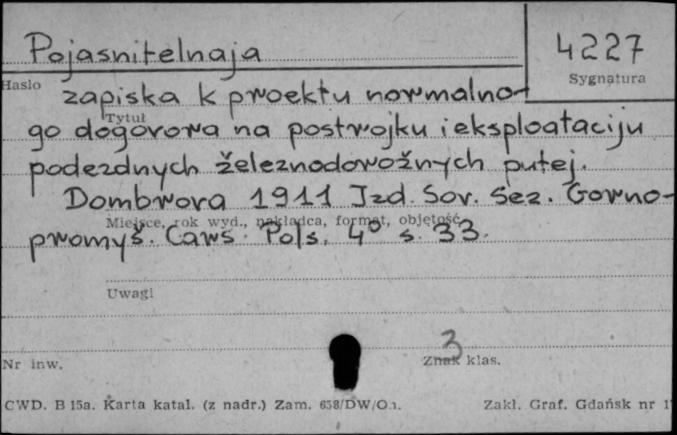 Pojasnitelnaja
4227
Hasło
Sygnatura
zapiska k proektu normalno-
Tytuł
go dogovora na postrojku i eksploataciju
podezdnych železnodorožnych putej.
Dombrova 1911 Izd. Sov. Sez. Gorno-
Miejsce, rok wyd., nakładca, format, objętość
promyš. Cars. Pols. 4° s. 33.
Uwagi
3
Nr inw.
Znak klas.
CWD. B 15a. Karta katal. (z nadr.) Zam. 658/DW/
Zakł. Graf. Gdańsk nr 1